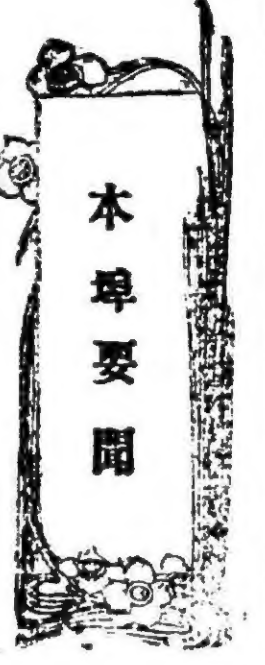 本埠要聞